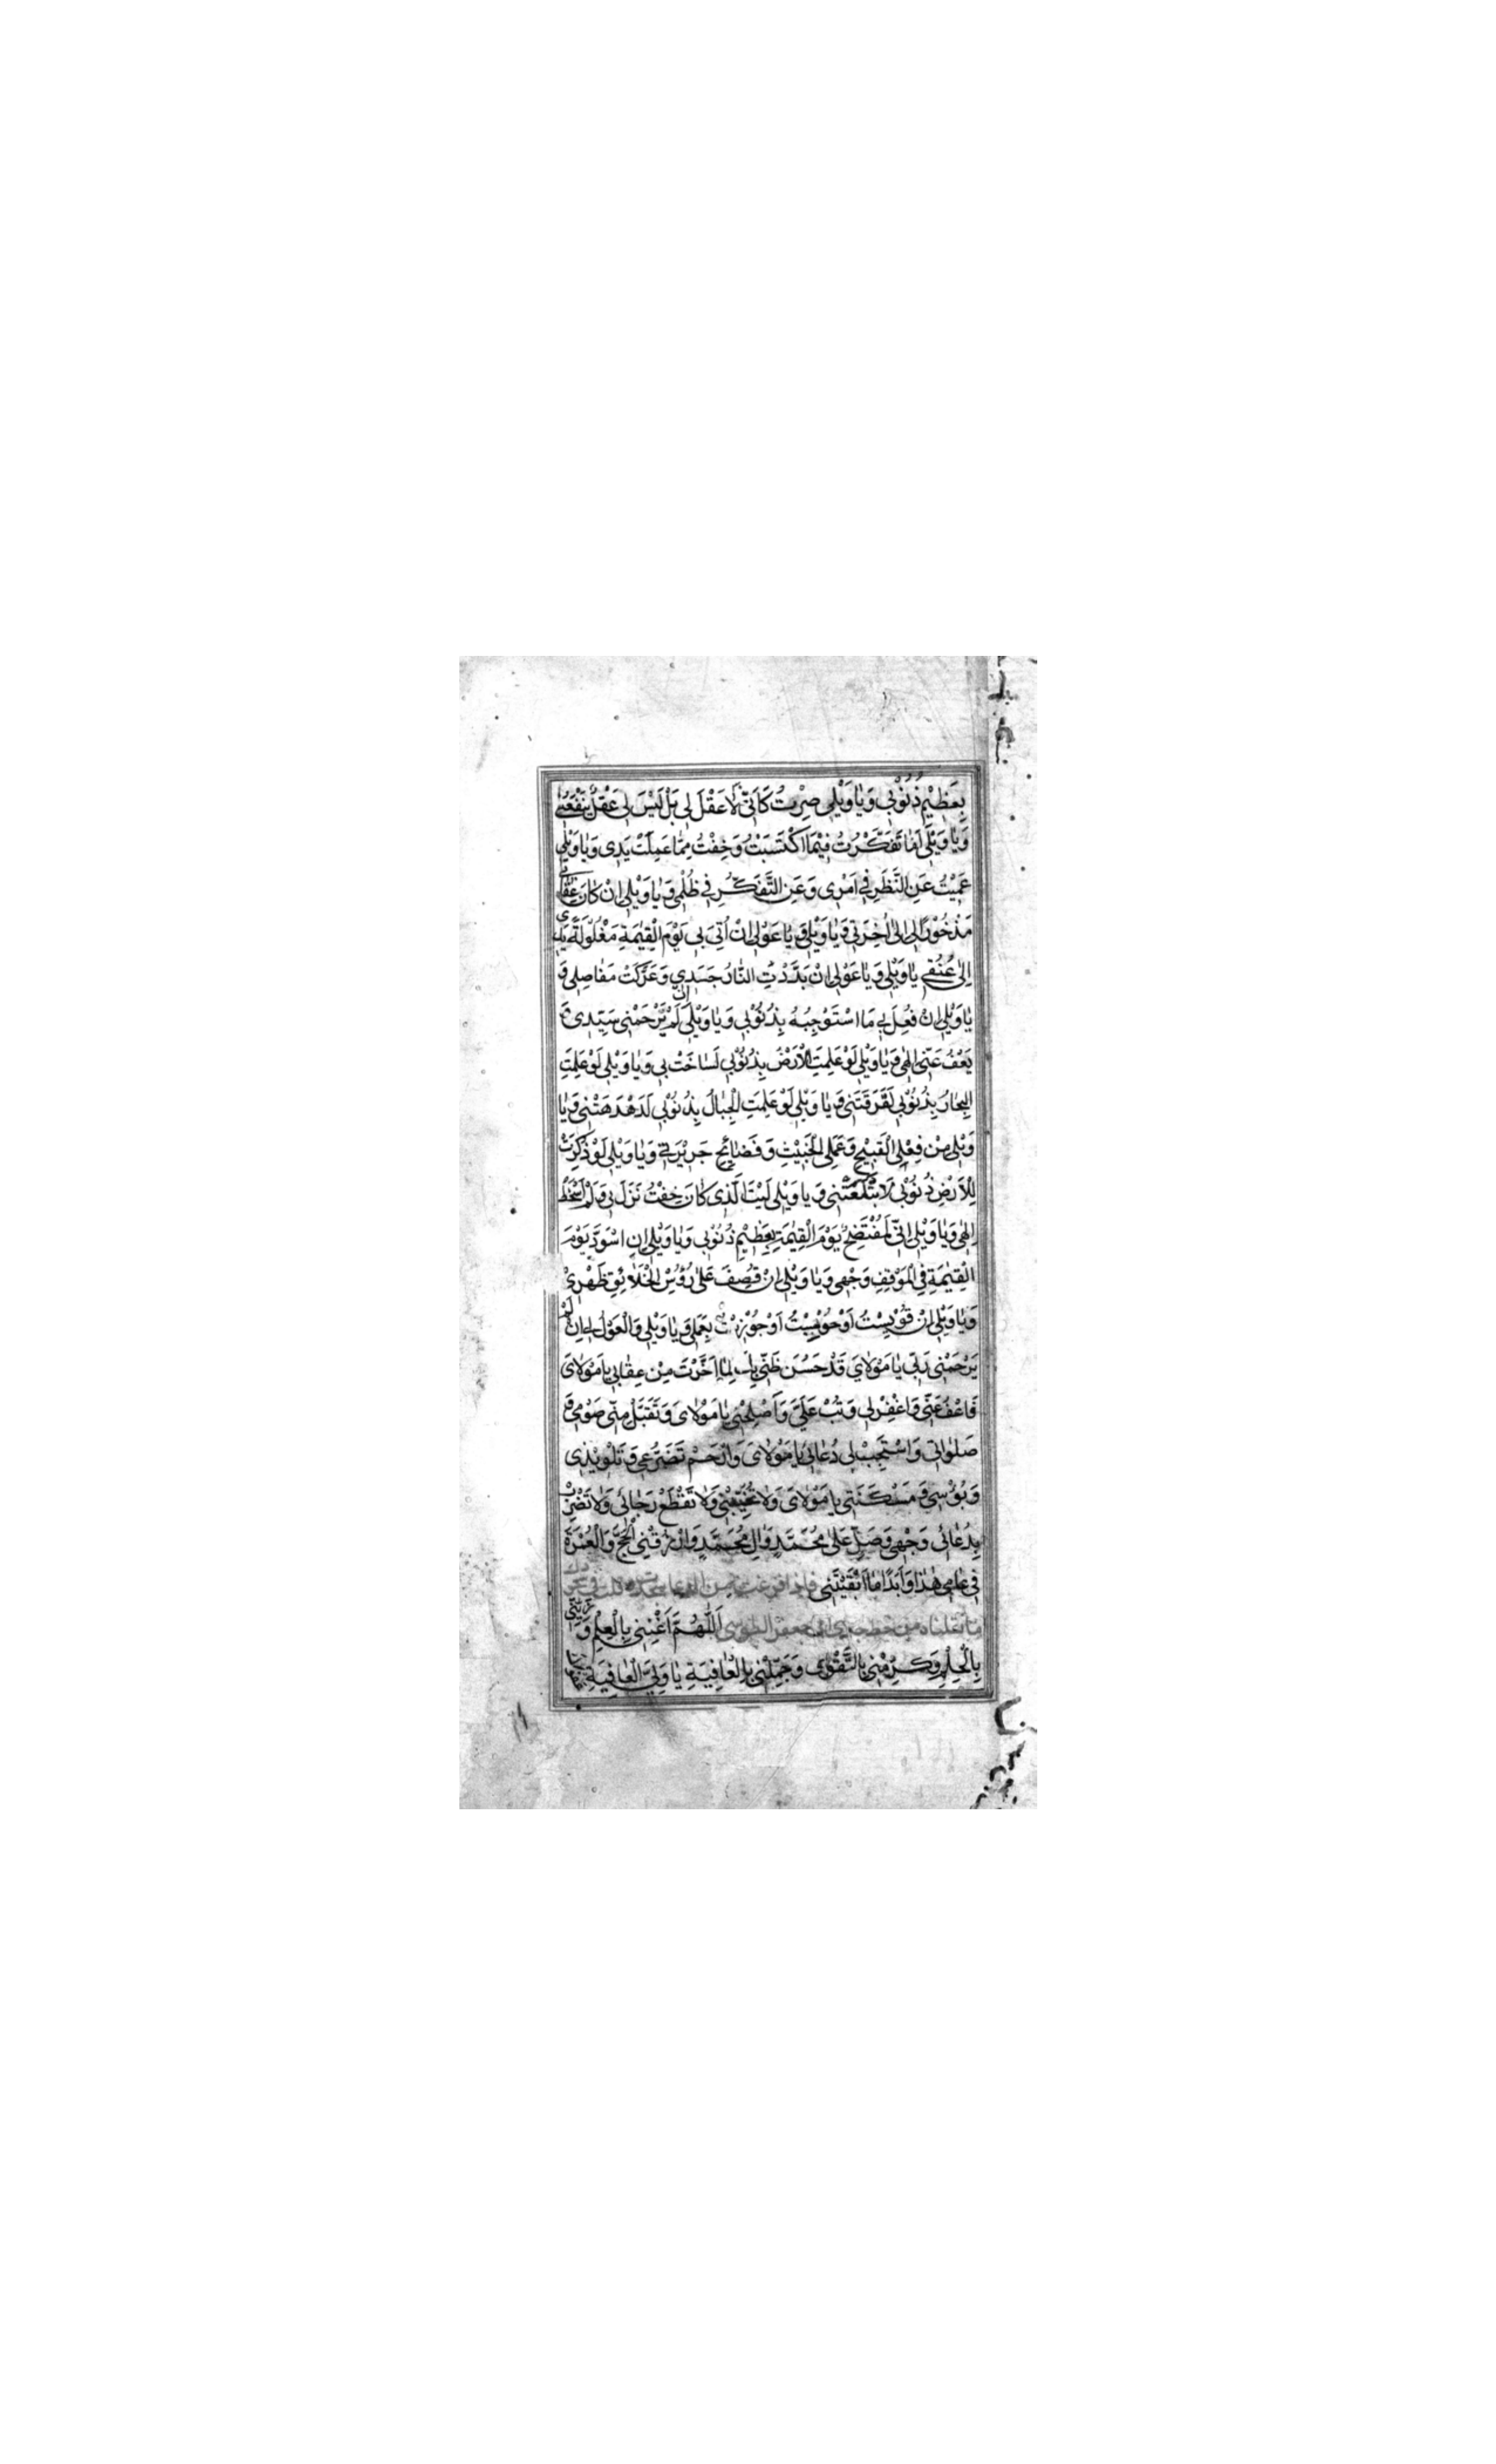 بِعَظِيْمِ ذُنُوْبِي وَيٰا وَيْلِي صِرْتُ كَاَنِّي لٰا عَقْلَ لِي بَلْ لَيْسَ لِي عَقْلٌ يَنْفَعُنِي
وَيٰا وَيْلِي اَمٰا تَفَكَّرْتُ فِيْمَا اكْتَسَبْتُ وَخِفْتُ مِمّٰا عَمِلَتْ يَدِي وَيٰا وَيْلِي
عَمِيْتُ عَنِ النَّظَرِ فِي اَمْرِي وَعَنِ التَّفَكُّرِ فِي ظُلْمِي وَيٰا وَيْلِي اِنْ كٰانَ عِقٰابِي
مَذْخُوْرًا لِي اِلٰى اٰخِرَتِي وَيٰا وَيْلِي وَيٰا عَوْلِي اِنْ اُتِيَ بِي يَوْمَ الْقِيٰمَةِ مَغْلُوْلَةً يَدِي
اِلٰى عُنُقِي يٰا وَيْلِي وَيٰا عَوْلِي اِنْ بَدَّدَتِ النّٰارُ جَسَدِي وَعَرَكَتْ مَفٰاصِلِي وَ
يٰا وَيْلِي اِنْ فُعِلَ بِي مَا اسْتَوْجِبُهُ بِذُنُوْبِي وَيٰا وَيْلِي اِنْ لَمْ يَرْحَمْنِي سَيِّدِي وَ
يَعْفُ عَنِّي اِلٰهِي وَيٰا وَيْلِي لَوْ عَلِمَتِ الْاَرْضُ بِذُنُوْبِي لَسٰاخَتْ بِي وَيٰا وَيْلِي لَوْ عَلِمَتِ
الْبِحٰارُ بِذُنُوْبِي لَغَرَقَتَنِي وَيٰا وَيْلِي لَوْ عَلِمَتِ الْجِبٰالُ بِذُنُوْبِي لَدَهْدَهَتْنِي وَيٰا
وَيْلِي مِنْ فِعْلِي الْقَبِيْحِ وَعَمَلِي الْخَبِيْثِ وَفَضٰائِحِ جَرِيْرَتِي وَيٰا وَيْلِي لَوْ ذُكِرَتْ
لِلْاَرْضِ ذُنُوْبِي لَابْتَلَعَتْنِي وَيٰا وَيْلِي لَيْتَ الَّذِي كٰانَ خِفْتُ نَزَلَ بِي وَلَمْ اُسْخِطْ
اِلٰهِي وَيٰا وَيْلِي اِنِّي لَمُفْتَضِحٌ يَوْمَ الْقِيٰمَةِ بِعَظِيْمِ ذُنُوْبِي وَيٰا وَيْلِي اِنِ اسْوَدَّ يَوْمَ
الْقِيٰمَةِ فِي الْمَوْقِفِ وَجْهِي وَيٰا وَيْلِي اِنْ قُصِفَ عَلٰى رُؤُسِ الْخَلٰائِقِ ظَهْرِي
وَيٰا وَيْلِي اِنْ قُوْيِسْتُ اَوْ حُوْسِبْتُ اَوْ جُوْزِيْتُ بِعَمَلِي وَيٰا وَيْلِي وَالْعَوْلُ لِي اِنْ لَمْ
يَرْحَمْنِي رَبِّي يٰا مَوْلٰايَ قَدْ حَسُنَ ظَنِّي بِكَ لِمٰا اَخَّرْتَ مِنْ عِقٰابِي يٰا مَوْلٰايَ
فَاعْفُ عَنِّي وَاغْفِرْ لِي وَتُبْ عَلَيَّ وَاَصْلِحْنِي يٰا مَوْلٰايَ وَتَقَبَّلْ مِنِّي صَوْمِي وَ
صَلوٰاتِي وَاسْتَجِبْ لِي دُعٰائِي يٰا مَوْلٰايَ وَارْحَمْ تَضَرُّعِي وَتَلْوِيْذِي
وَبُؤْسِي وَمَسْكَنَتِي يٰا مَوْلٰايَ وَلٰا تُخَيِّبْنِي وَلٰا تَقْطَعْ رَجٰائِي وَلٰا تَضْرِبْ
بِدُعٰائِي وَجْهِي وَصَلِّ عَلٰى مُحَمَّدٍ وَاٰلِ مُحَمَّدٍ وَارْزُقْنِي الْحَجَّ وَالْعُمْرَةَ
فِي عٰامِي هٰذٰا وَاَبَدًا مٰا اَبْقَيْتَنِي فاذا فرغت من الدعا
ما نقلناه من خط جدي ابي جعفر الطوسي اَللّٰهُمَّ اَغْنِنِي بِالْعِلْمِ وَزَيِّنِّي
بِالْحِلْمِ وَكَرِّمْنِي بِالتَّقْوٰى وَجَمِّلْنِي بِالْعٰافِيَةِ يٰا وَلِيَّ الْعٰافِيَةِ